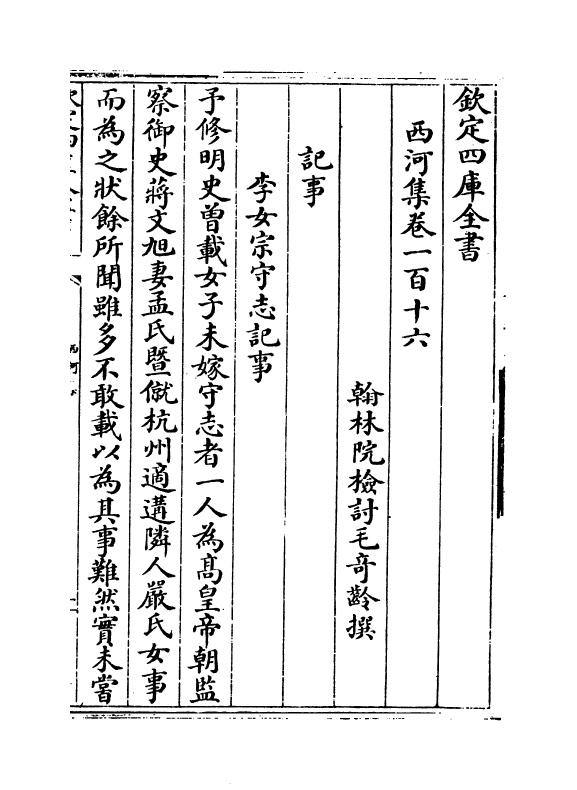 欽定四庫全書
西河集卷一百十六
翰林院檢討毛奇齡撰
記事
李女宗守志記事
予修明史曾載女子未嫁守志者一人為髙皇帝朝監
察御史蔣文旭妻孟氏暨僦杭州適遘隣人嚴氏女事
而為之狀餘所聞雖多不敢載以為其事難然實未當